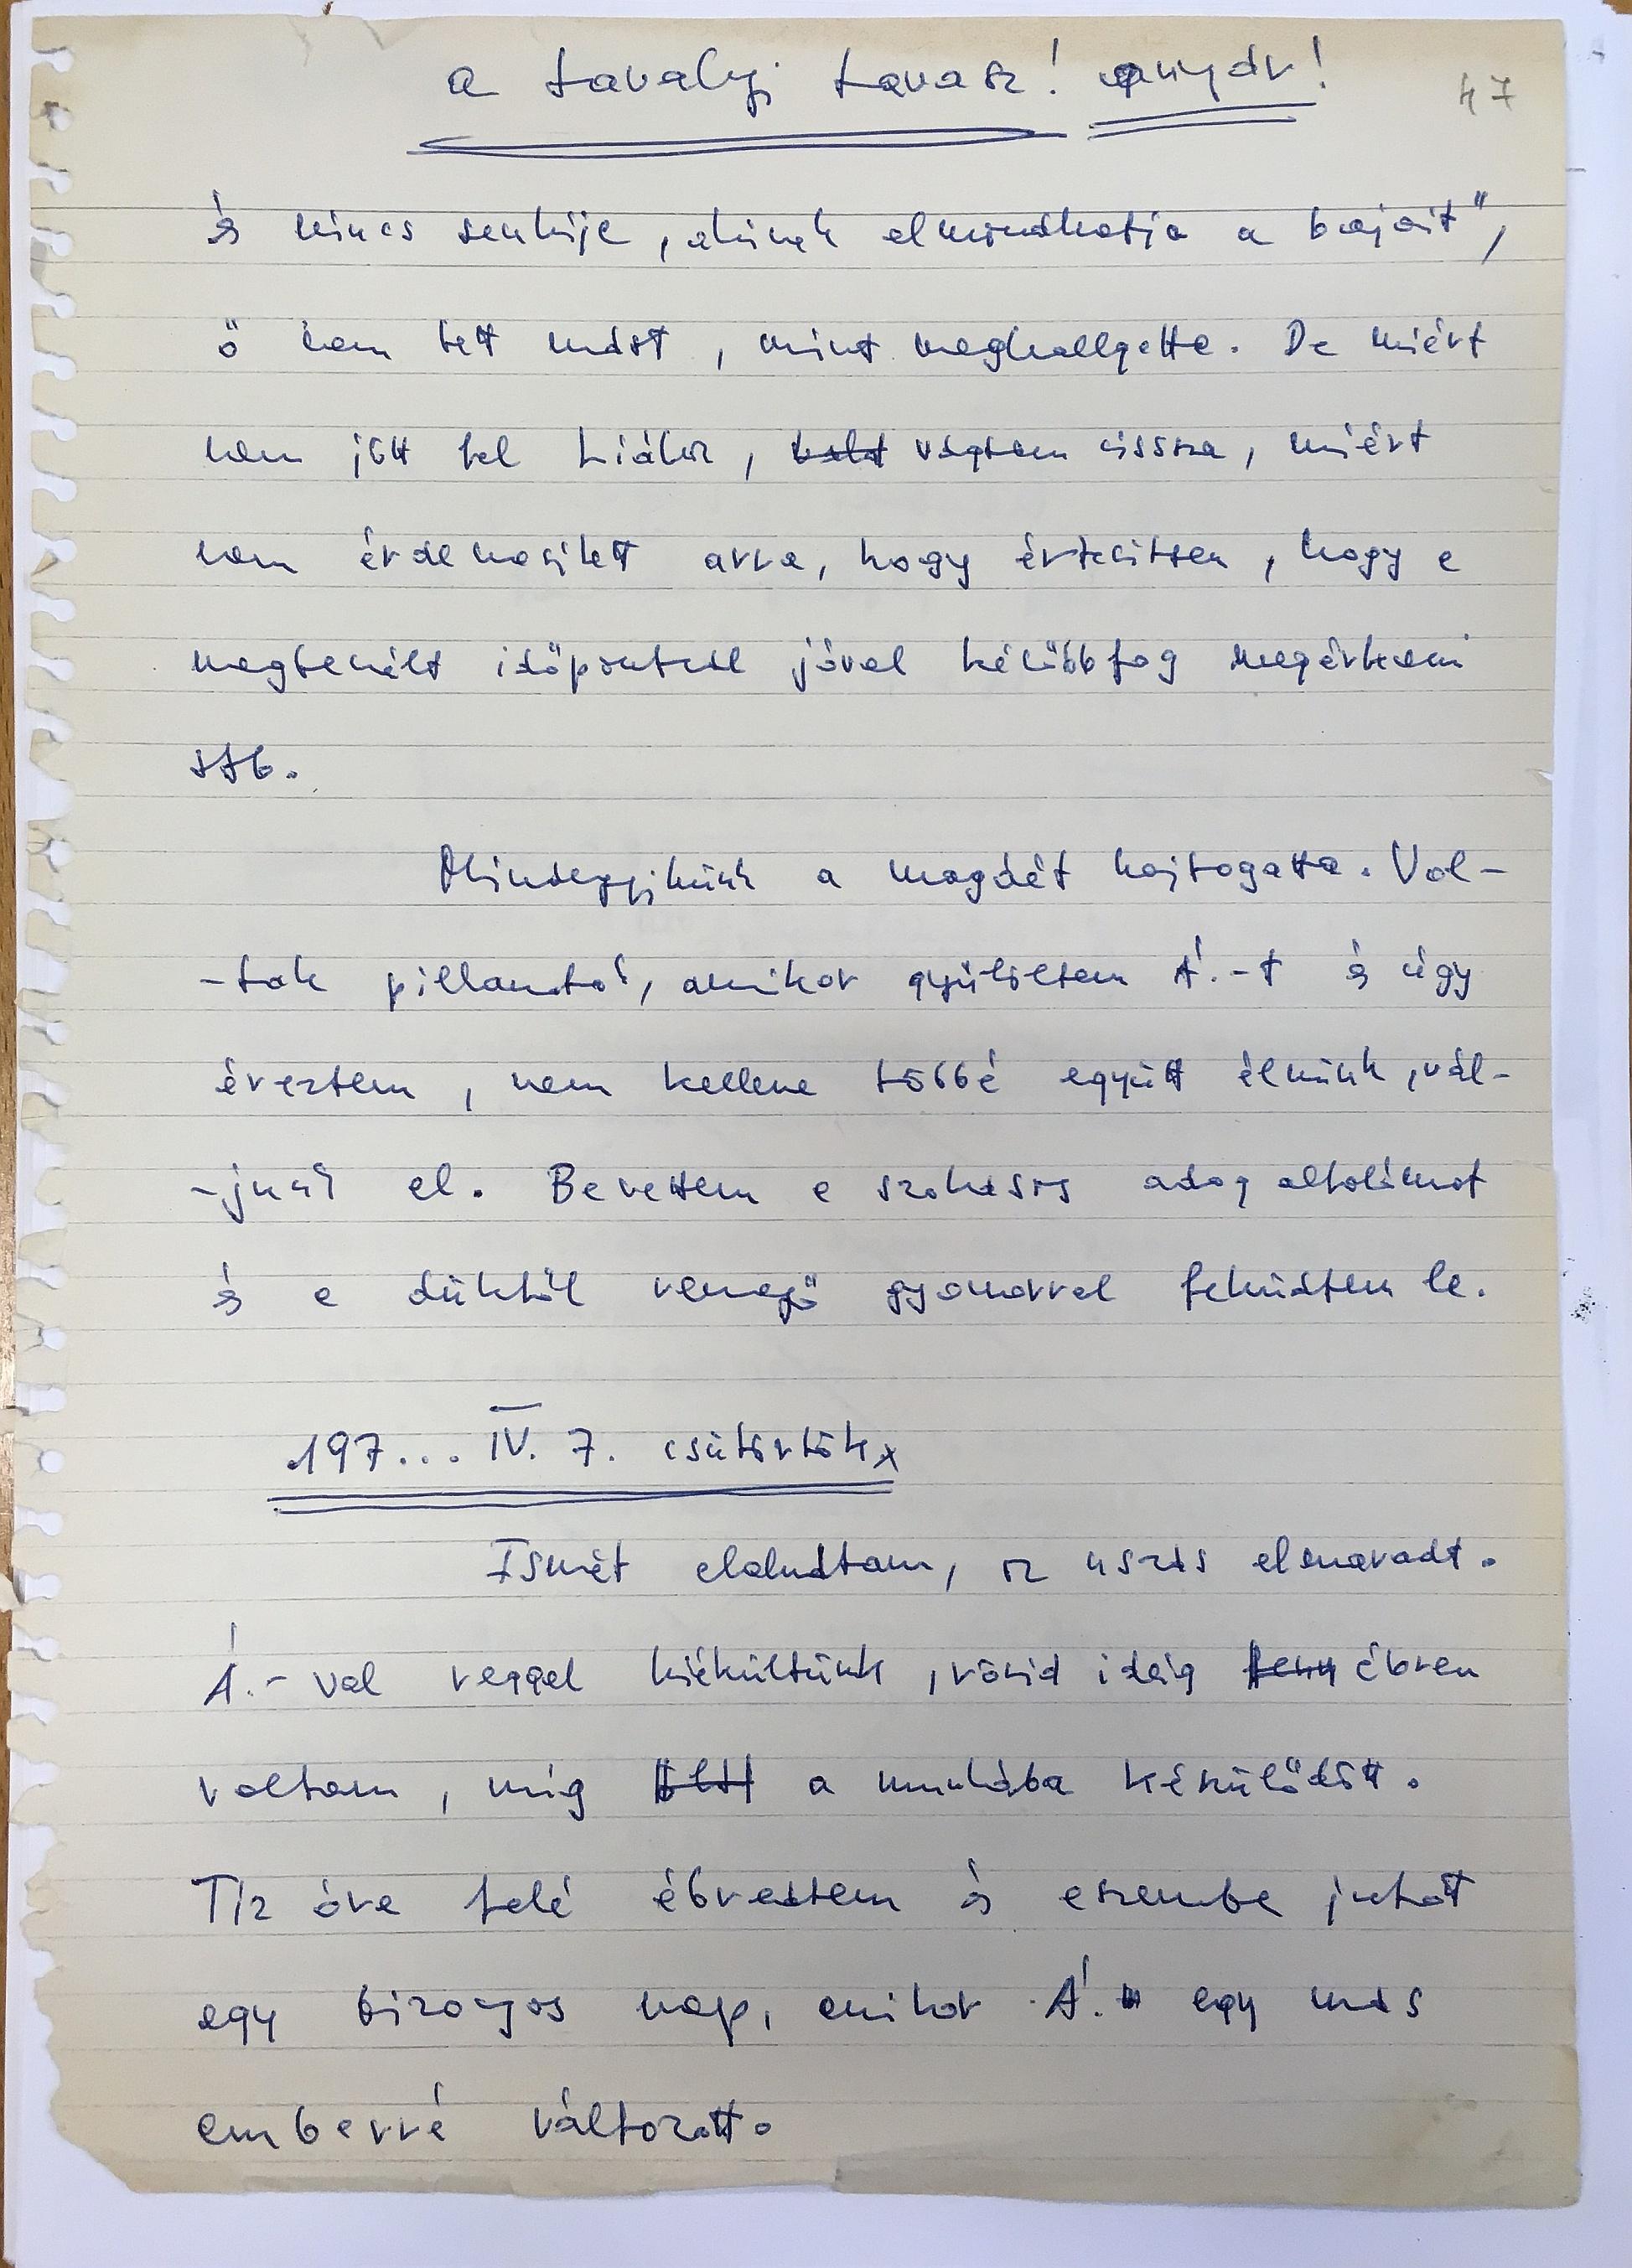 a tavalyi tavasz! a nyár!
47
és nincs senkije, akinek elmondhatja a bajait",
ő nem tett mást, mint meghallgatta. De miért
nem jött fel hozzám, vágtam vissza, miért
nem érdemesített arra, hogy értesítsen, hogy a
megbeszélt időpontnál jóval később fog megérkezni
stb.
Mindegyikünk a magáét hajtogatta. Vol-
-tak pillanatok, amikor gyűlöltem Á.-t és úgy
éreztem, nem kellene többé együtt élnünk, vál-
-junk el. Bevettem a szokásos adag altatómat
és a dühtől remegő gyomorral feküdtem le.
197... IV. 7. csütörtök
Ismét elaludtam, az uszás elmaradt.
Á.-val reggel kibékültünk, rövid ideig ébren
voltam, míg a munkába készülődött.
Tíz óra felé ébredtem és eszembe jutott
egy bizonyos nap, amikor Á. egy más
emberré változott.